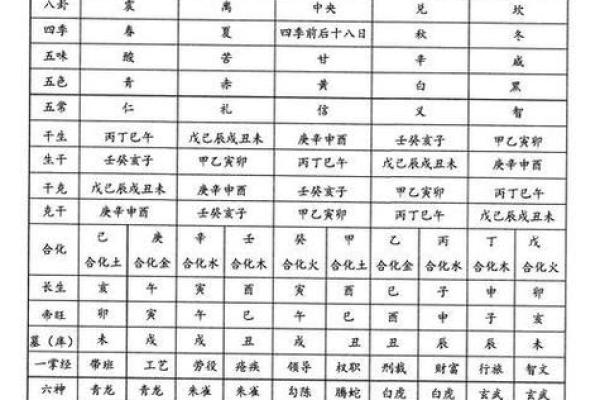 八卦 震 离 中央 兑 坎
四季 春 夏 四季前后十八日 秋 冬
五味 酸 苦 甘 辛 咸
五色 青 赤 黄 白 黑
五常 仁 礼 信 义 智
干生 丙丁巳午 戊己辰戌丑未 庚辛申酉 壬癸亥子 甲乙寅卯
生干 壬癸亥子 甲乙寅卯 丙丁巳午 戊己辰戌丑未 庚辛申酉
干克 戊己辰戌丑未 庚辛申酉 壬癸亥子 甲乙寅卯 丙丁巳午
克干 庚辛申酉 壬癸亥子 甲乙寅卯 丙丁巳午 戊己辰戌丑未
己 庚 辛 壬 癸 甲 乙 丙 丁 戊
合化 合化土 合化金 合化水 合化木 合化火 合化土 合化金 合化水 合化木 合化火
长生 亥 午 寅 酉 寅 酉 巳 子 申 卯
帝旺 卯 寅 午 巳 午 巳 酉 申 子 亥
墓（库） 未 戌 戌 丑 戌 丑 丑 辰 辰 未
一掌经 带班 工艺 劳役 疮疾 领导 权职 刑裁 财富 行旅 智文
六神 青龙 青龙 朱雀 朱雀 勾陈 螣蛇 白虎 白虎 玄武 玄武